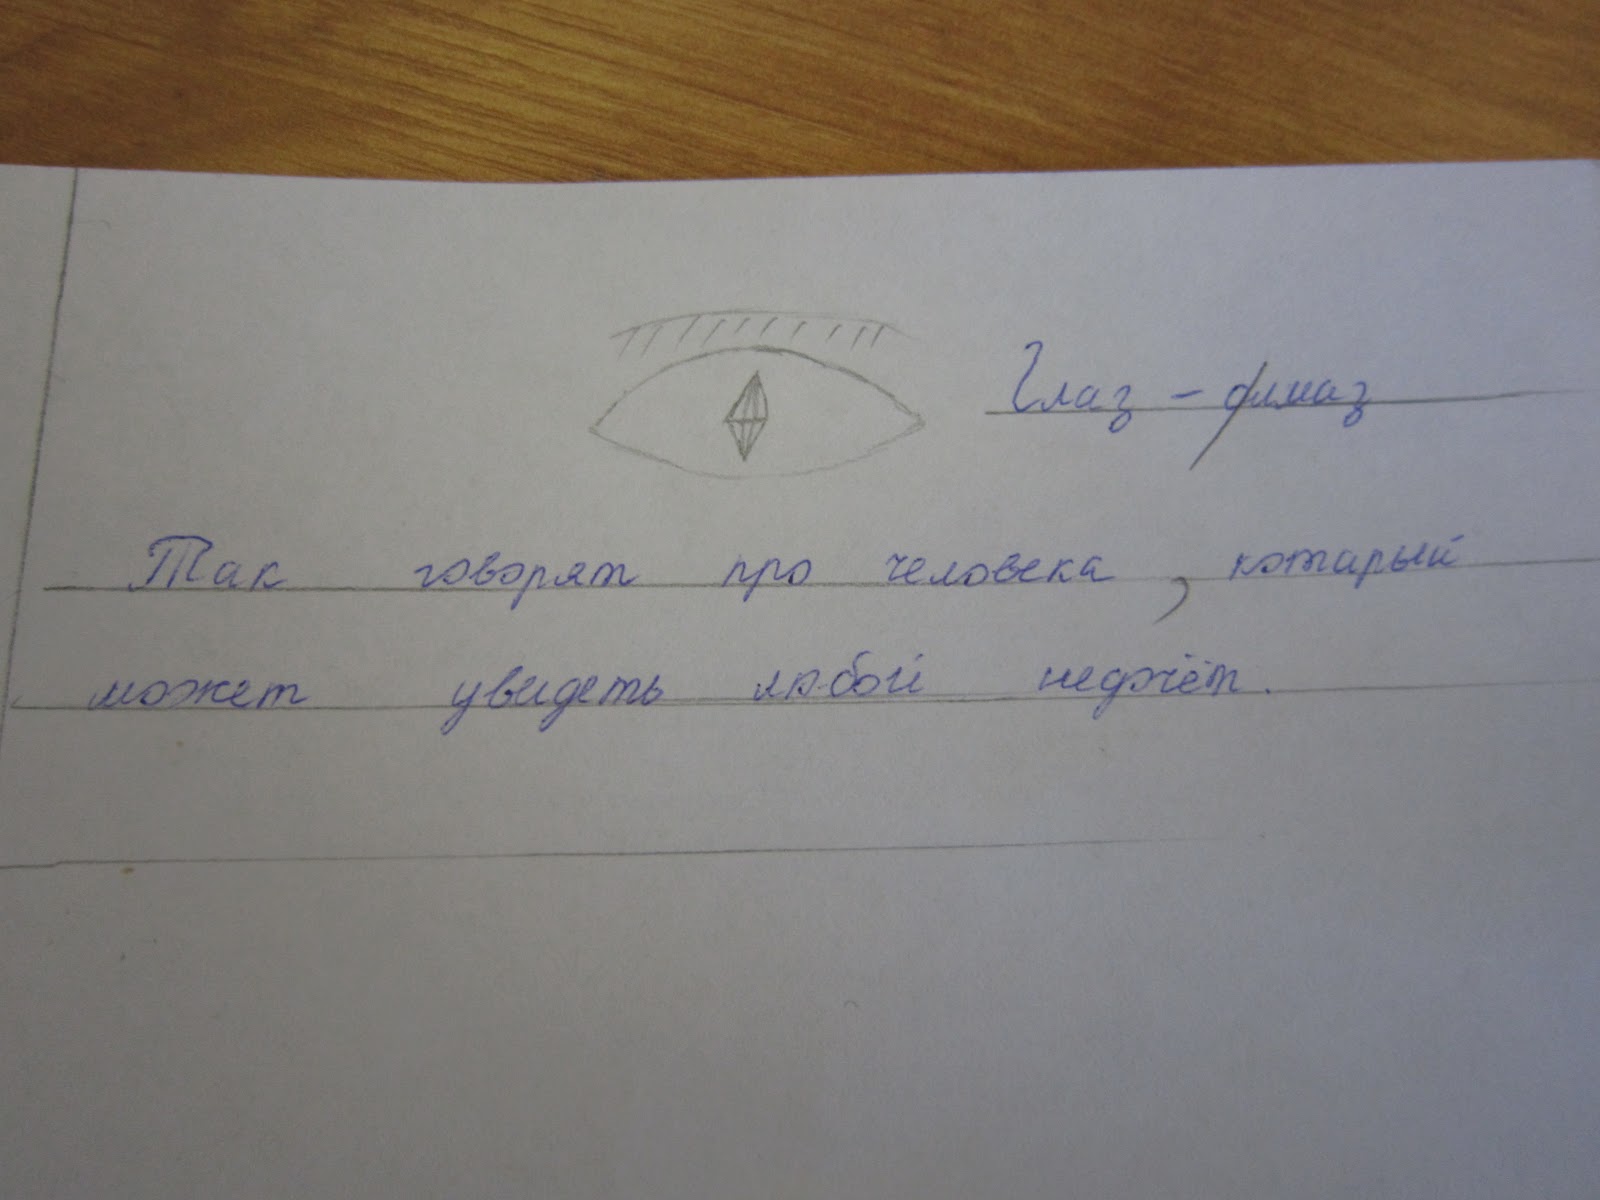 Глаз - алмаз
Так говорят про человека, котарый
может увидеть любой недочёт.